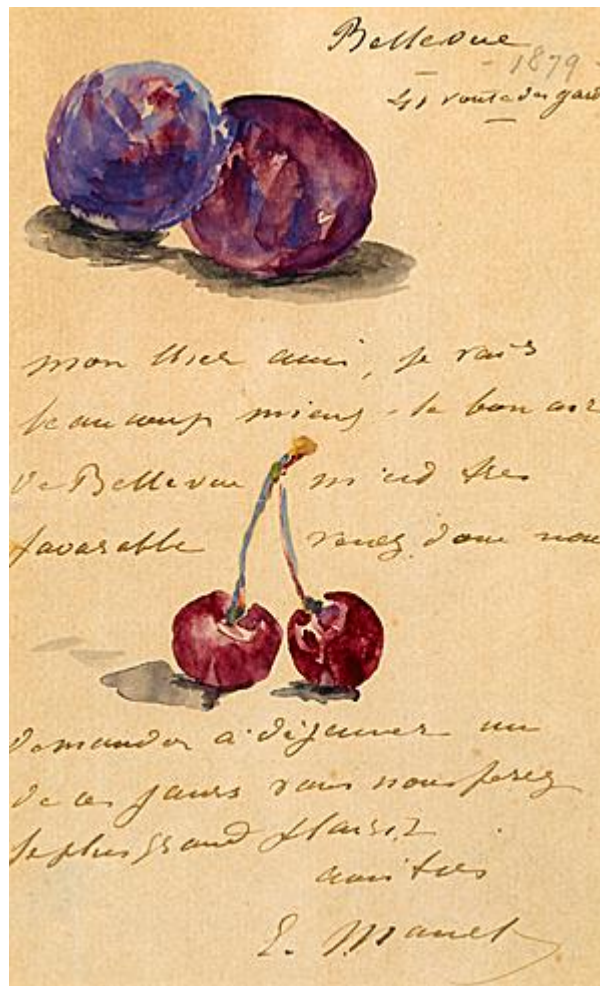 Bellevue
- 1879 -
41 route des gard
mon cher ami, je vais
beaucoup mieux - le bon air
de Bellevue m'est très
favorable venez donc nous
demander à déjeuner un
de ces jours vous nous ferez
le plus grand plaisir.
amitiés
E. Manet